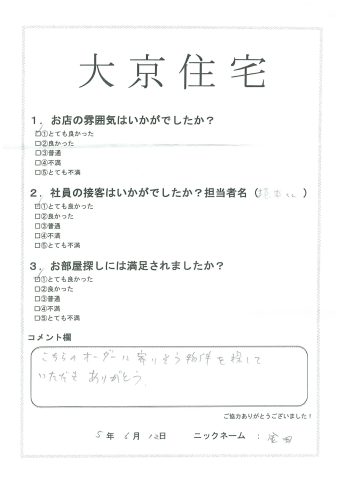 大京住宅
1．お店の雰囲気はいかがでしたか？
□①とても良かった
□②良かった
□③普通
□④不満
□⑤とても不満
2．社員の接客はいかがでしたか？担当者名（　　）
□①とても良かった
□②良かった
□③普通
□④不満
□⑤とても不満
3．お部屋探しには満足されましたか？
□①とても良かった
□②良かった
□③普通
□④不満
□⑤とても不満
コメント欄
こちらのオーダーに寄りそう物件を探して
いただき ありがとう
ご協力ありがとうございました！
5年 6月 12日 ニックネーム ：